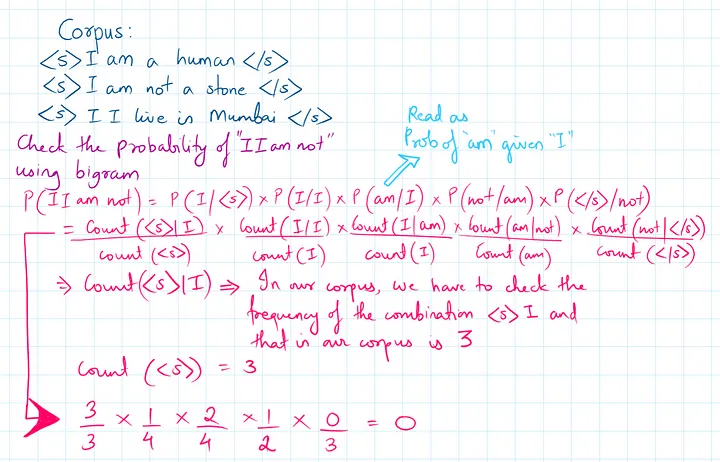 Corpus:
<s> I am a human </s>
<s> I am not a stone </s>
<s> I I live in Mumbai </s>
Check the probability of "I I am not"
using bigram
Read as
Prob of "am" given "I"
P(I I am not) = P(I/<s>) × P(I/I) × P(am/I) × P(not/am) × P(</s>/not)
= Count(<s>|I) × Count(I/I) × Count(I|am) × Count(am|not) × Count(not|</s>)
count(<s>) count(I) count(I) Count(am) Count(<|s>)
⇒ Count(<s>|I) ⇒ In our corpus, we have to check the
frequency of the combination <s> I and
that in our corpus is 3
Count (<s>) = 3
3/3 × 1/4 × 2/4 × 1/2 × 0/3 = 0